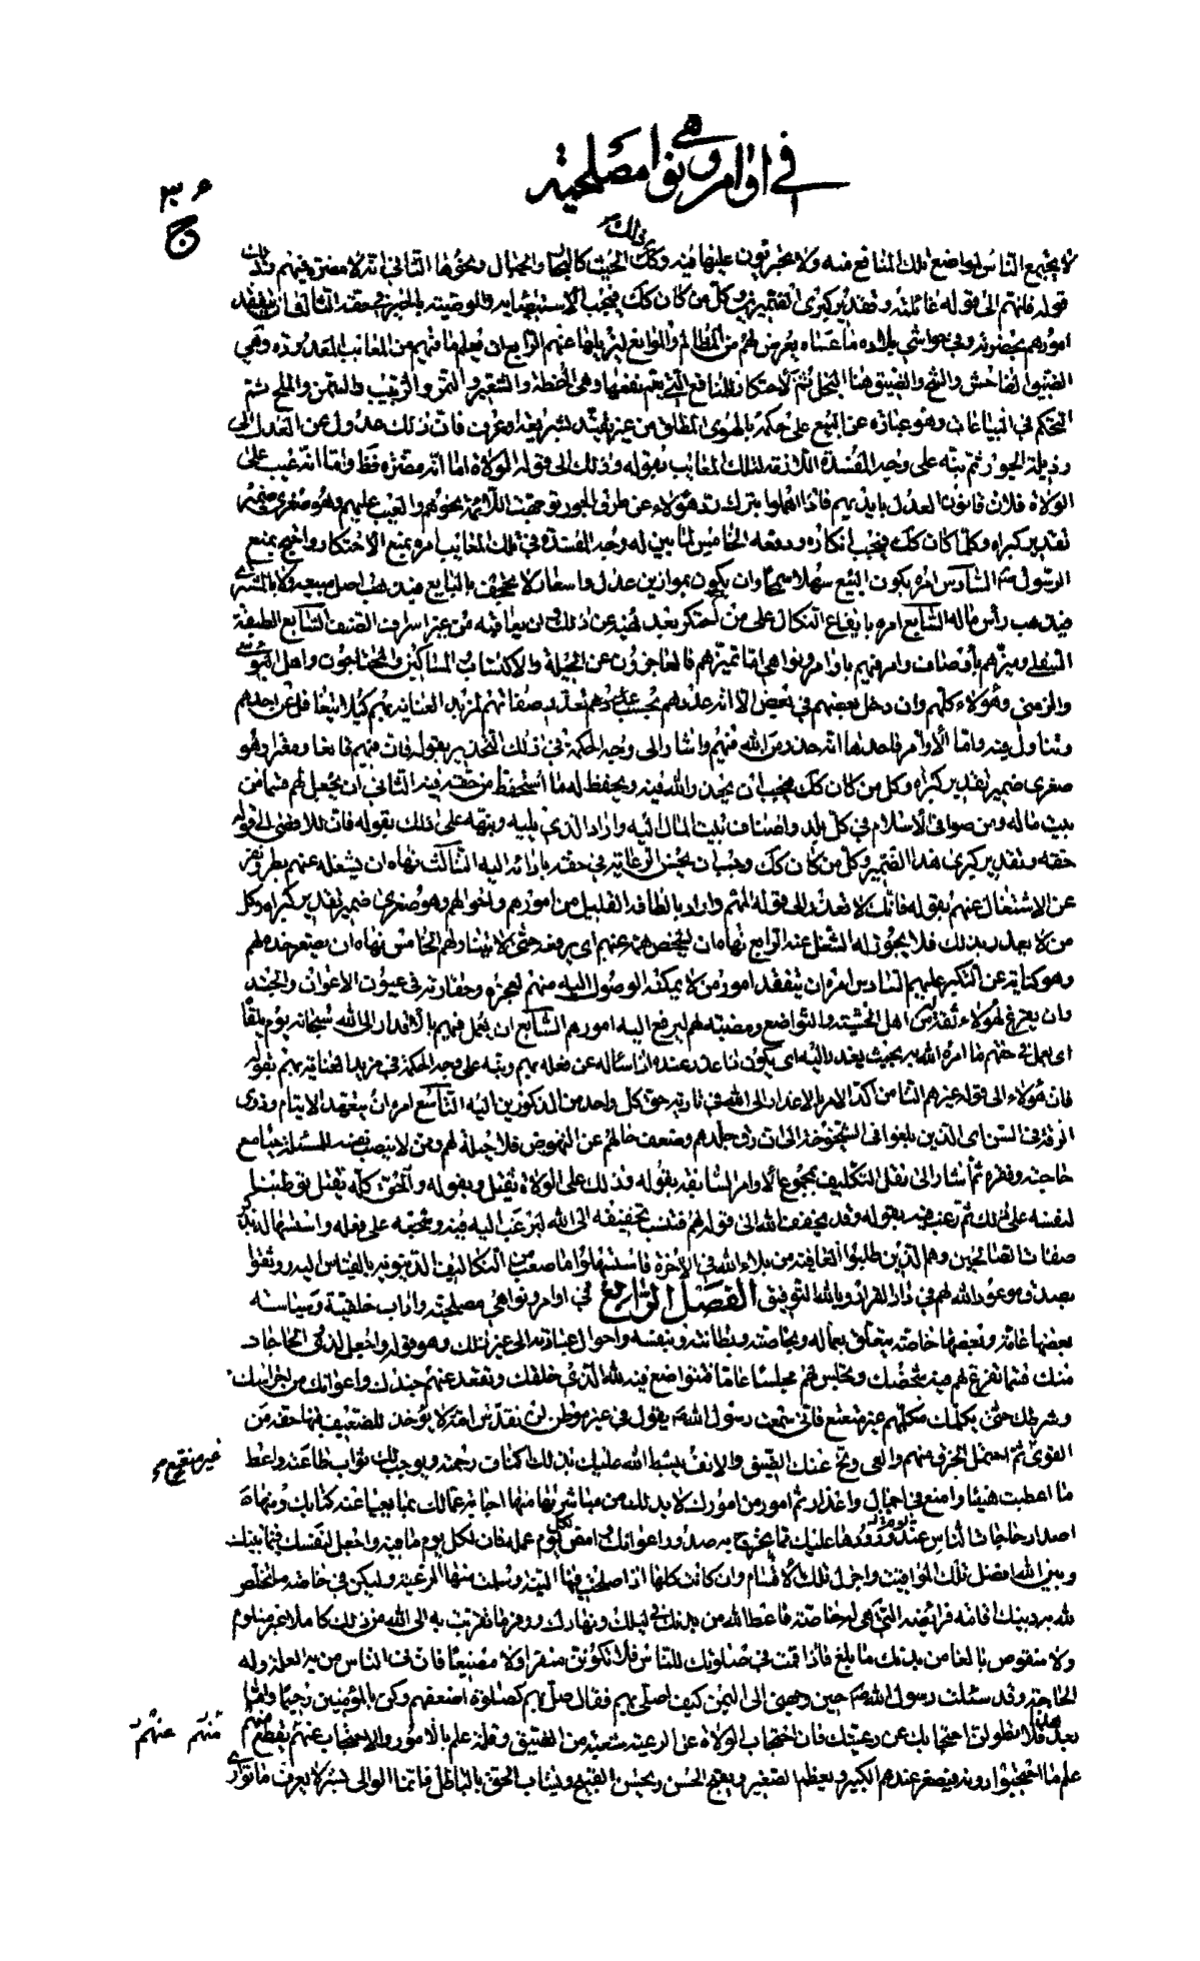 في اوامر ونواهي مصلحية
ج
ذلك
لا يجتمع الناس لمواضع تلك المنافع منه ولا يجترؤن عليها فيه وذلك الحيث كالبحار والجبال ونحوها الثاني انه لا مضرة فيهم
قوله فانهم الى قوله غائلته وتقدير كبرى الضميرين وكل من كان كك فيجب الاستيصاء به والوصية بالخير في حقه الثالث ان يتفقد
امورهم بحضرته وفي حواشي بلاده ما عساه يعرض لهم من المظالم والموانع ليزيلها عنهم الرابع ان يعلم ما فيهم من المعائب المعدودة وهي
الضيق الفاحش والشح والضيق هنا البخل ثم الاحتكار للمنافع التي يعم نفعها وهي الحنطة والشعير والتمر والزبيب والسمن والملح ثم
التحكم في البياعات وهو عبارة عن البيع على حكمه بالهوى المطلق من غير تقييد بشريعة او عرف فان ذلك عدول عن العدل الى
رذيلة الجور ثم نبه على وجه المفسدة اللازمة لتلك المعائب بقوله وذلك الى قوله الولاة اما انه مضرة فظ واما انه عيب على
الولاة فلان قانون العدل بايديهم فاذا اهملوا بترك رد هؤلاء عن طرف الجور توجهت اللائمة نحوهم والعيب عليهم وهو صغرى ضمير
تقدير كبراه وكلما كان كك فيجب انكاره ودفعه الخامس لما بين له وجه المفسدة في تلك المعائب امره بمنع الاحتكار واحتج بمنع
الرسول ص السادس امره بكون البيع سهلا سمحا وان يكون بموازين عدل واسعار لا يجحف بالبايع فيذهب اصل مبيعه ولا بالمشتري
فيذهب رأس ماله السابع امره بايقاع النكال على من احتكر بعد نهيه عن ذلك وان يعاقبه من غير اسراف الصنف السابع الطبقة
السفلى وميزهم باوصاف وامر فيهم باوامر ونواهي اما تميزهم فالعاجزون عن الحيلة والاكتساب المساكين والمحتاجون واهل البؤسى
والزمنى وهؤلاء كلهم وان دخل بعضهم في بعض الا انه عددهم بحسب تعديد صفاتهم لمزيد العناية بهم كيلا يتغافل عن احدهم
ويتناول فيه واما الاوامر فاحدها انه حذره من الله فيهم واشار الى وجه الحكمة في ذلك التحذير بقوله فان فيهم قانعا ومعترا وهو
صغرى ضمير تقدير كبراه وكل من كان كك فيجب ان يحذر والله فيه ويحفظ له ما استحفظ من حقه فيه الثاني ان يجعل لهم قسما من
بيت ماله ومن صوافي الاسلام في كل بلد واضاف بيت المال اليه واراد الذي يليه ونبهه على ذلك بقوله فان للاقصى الى قوله
حقه وتقدير كبرى هذا الضمير وكل من كان كك وجب ان يحسن الرعاية في حقه بادائه اليه الثالث نهاه ان يشغله عنهم بطر ونفره
عن الاشتغال عنهم بقوله فانك لا تعذر الى قوله المهم واراد بالتافه القليل من امورهم واحوالهم وهو صغرى ضمير تقدير كبراه وكل
من لا يعذر بذلك فلا يجوز له الشغل عنه الرابع نهاه ان يشخص همه عنهم اى يرفعه حتى لا يتناولهم الخامس نهاه ان يصعر خده لهم
وهو كناية عن التكبر عليهم السادس امره ان يتفقد امور من لا يمكنه الوصول اليه منهم لعجزه وحقارته في عيون الاعوان والجند
وان يفرغ لهؤلاء ثقة من اهل الخشية والتواضع ومضنته لهم ليرفع اليه امورهم السابع ان يعمل فيهم بالاعذار الى الله سبحانه يوم يلقاه
اى يعمل في حقهم ما امره الله به بحيث يعذر اليه اى يكون ذا عذر عنده اذا ساله عن فعله بهم ونبه على وجه الحكمة في مزيد العناية بهم بقوله
فان هؤلاء الى قوله غيرهم الثامن اكد الامر بالاعذار الى الله في تادية حق كل واحد من المذكورين اليه التاسع امره ان يتعهد الايتام وذوى
الرقة في السن اى الذين بلغوا في الشيخوخة الى ان رق جلدهم وضعف حالهم عن النهوض فلا حيلة لهم ومن لا ينصب نفسه للمسئلة مع
حاجته وفقره ثم اشار الى نقل التكليف بمجموع الاوامر السابقة بقوله وذلك على الولاة ثقيل وبقوله والحق كله ثقيل توطينا
لنفسه على ذلك ثم رغب فيه بقوله وقد يخففه الله الى قوله لهم فنسب تخفيفه الى الله ليرغب اليه فيه ويشجعه على فعله
صفات الصالحين وهم الذين طلبوا العافية من بلاء الله في الاخرة فاستسهلوا ما صعب من التكاليف الدنيوية بالقياس اليه ووثقوا
بصدق موعود الله لهم في دار القرار وبالله التوفيق الفصل الرابع في اوامر ونواهي مصلحية واداب خلقية وسياسية
بعضها عامة وبعضها خاصة يتعلق بعماله وبخاصته وبطانته وبنفسه واحوال عبادته الى غير ذلك وهو قوله واجعل لذوى الحاجات
منك قسما تفرغ لهم فيه شخصك وتجلس لهم مجلسا عاما فتتواضع فيه لله الذي خلقك وتقعد عنهم جندك واعوانك من احراسك
وشرطك حتى يكلمك مكلمهم غير متعتع فاني سمعت رسول الله ص يقول في غير موطن لن تقدس امة لا يؤخذ للضعيف فيها حقه من
القوى ثم احتمل الخرق منهم والعى ونح عنك الضيق والانف يبسط الله عليك بذلك اكناف رحمته ويوجب لك ثواب طاعته واعط
ما اعطيت هنيئا وامنع في اجمال واعذار ثم امور من امورك لا بد لك من مباشرتها منها اجابة عمالك بما يعيا عنه كتابك ومنها
اصدار حاجات الناس عند ورودها عليك بما تحرج به صدور اعوانك وامض لكل يوم عمله فان لكل يوم ما فيه واجعل لنفسك فيما بينك
وبين الله افضل تلك المواقيت واجزل تلك الاقسام وان كانت كلها لله اذا صلحت فيها النية وسلمت منها الرعية وليكن في خاصة ما تخلص
لله به دينك اقامة فرائضه التي هي له خاصة فاعط الله من بدنك في ليلك ونهارك ووف ما تقربت به الى الله من ذلك كاملا غير مثلوم
ولا منقوص بالغا من بدنك ما بلغ فاذا قمت في صلوتك للناس فلا تكونن منفرا ولا مضيعا فان في الناس من به العلة وله
الحاجة وقد سئلت رسول الله ص حين وجهني الى اليمن كيف اصلي بهم فقال صل بهم كصلوة اضعفهم وكن بالمؤمنين رحيما واما
بعد فلا تطولن احتجابك عن رعيتك فان احتجاب الولاة عن الرعية شعبة من الضيق وقلة علم بالامور والاحتجاب عنهم يقطع عنهم
علم ما احتجبوا دونه فيصغر عندهم الكبير ويعظم الصغير ويقبح الحسن ويحسن القبيح ويشاب الحق بالباطل فانما الوالى بشر لا يعرف ما توارى
منهم عنهم